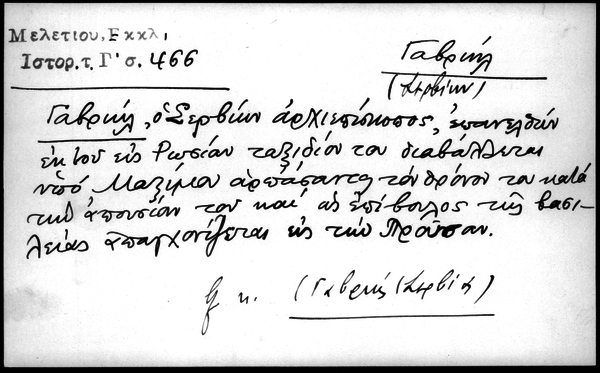 Μελετίου, Εκκλ.
Ιστορ. τ. Γ' σ. 466
Γαβριήλ
(Σερβίων)
Γαβριήλ, ὁ Σερβίων ἀρχιεπίσκοπος, ἐπανελθών
ἐκ τοῦ εἰς Ρωσίαν ταξιδίου του διαβάλλεται
ὑπό Μαξίμου ἁρπάσαντος τόν θρόνον του κατά
τήν ἀπουσίαν του καί ὡς ἐπίβουλος τῆς βασι-
λείας ἀπαγχονίζεται εἰς τήν Προῦσαν.
(Γαβριήλ Σερβία)